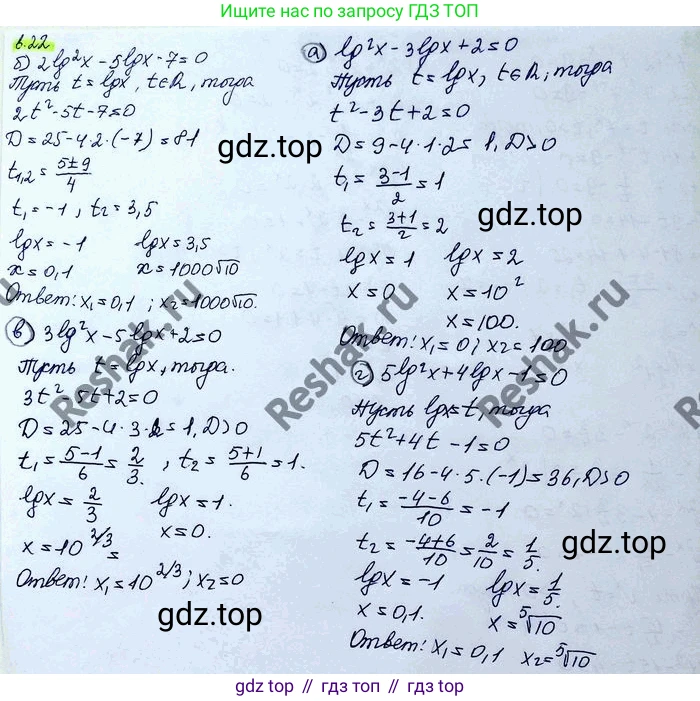 Ищите нас в интернете по запросу ГДЗ ТОП
6.22
б) 2lg²x - 5lgx - 7 = 0
Пусть t = lgx, t∈R, тогда
2t² - 5t - 7 = 0
D = 25 - 4·2·(-7) = 81
t₁,₂ = (5±9)/4
t₁ = -1, t₂ = 3,5
lgx = -1 lgx = 3,5
x = 0,1 x = 1000√10
Ответ: x₁ = 0,1 ; x₂ = 1000√10.
в) 3lg²x - 5lgx + 2 = 0
Пусть t = lgx, тогда.
3t² - 5t + 2 = 0
D = 25 - 4·3·2 = 1, D>0
t₁ = (5-1)/6 = 2/3. , t₂ = (5+1)/6 = 1.
lgx = 2/3 lgx = 1.
x = 10^(2/3) = x = 0.
Ответ: x₁ = 10^(2/3); x₂ = 0
а) lg²x - 3lgx + 2 = 0
Пусть t = lgx, t∈R, тогда
t² - 3t + 2 = 0
D = 9 - 4·1·2 = 1, D>0
t₁ = (3-1)/2 = 1
t₂ = (3+1)/2 = 2
lgx = 1 lgx = 2
x = 0 x = 10²
x = 100.
Ответ: x₁ = 0; x₂ = 100
г) 5lg²x + 4lgx - 1 = 0
Пусть lgx = t, тогда
5t² + 4t - 1 = 0
D = 16 - 4·5·(-1) = 36, D>0
t₁ = (-4-6)/10 = -1
t₂ = (-4+6)/10 = 2/10 = 1/5.
lgx = -1 lgx = 1/5.
x = 0,1. x = ⁵√10
Ответ: x₁ = 0,1 x₂ = ⁵√10
gdz.top
gdz.top
gdz.top
gdz.top
Reshak.ru
Reshak.ru
Reshak.ru
Больше готовых домашних заданий на gdz.top / гдз.топ